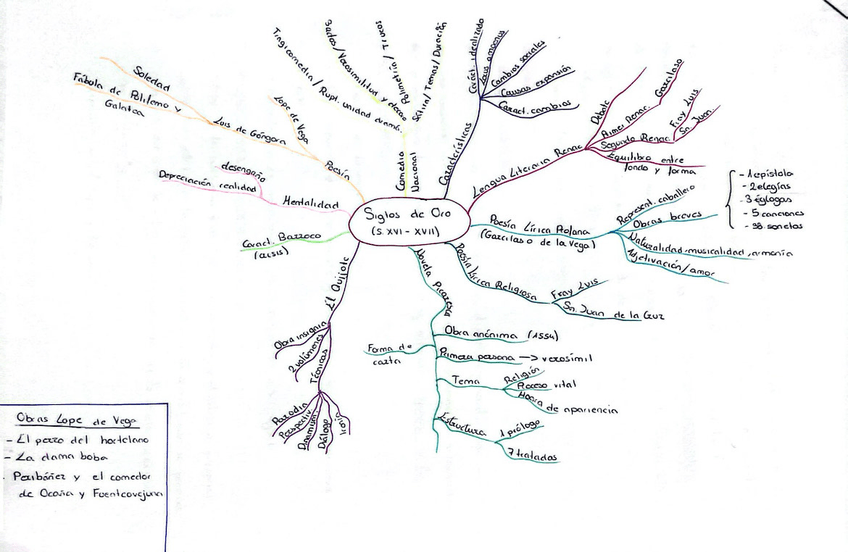 Siglos de Oro
(S. XVI - XVII)
Características
Caráct. idealizado
Cambios sociales
Causas expansión
Caract. cambios
Lengua Literaria Renac.
Debate
Primer Renac.
Garcilaso
Segundo Renac.
Fray Luis
Sn Juan
Equilibrio entre
fondo y forma
Poesía Lírica Profana
(Garcilaso de la Vega)
Represent. caballero
Obras breves
- 1 epístola
- 2 elegías
- 3 églogas
- 5 canciones
- 38 sonetos
Naturalidad, musicalidad, armonía
Adjetivación / amor
Poesía Lírica Religiosa
Fray Luis
Sn Juan de la Cruz
Novela Picaresca
Obra anónima (1554)
Forma de
carta
Primera persona → verosímil
Tema
Religión
Proceso vital
Honra de apariencia
Estructura
1 prólogo
7 tratados
El Quijote
Obra insignia
2 volúmenes
Técnicas
Parodia
Perspectiv.
Diálogo
Ironía
Caract. Barroco
(crisis)
Mentalidad
desengaño
Depreciación realidad
Poesía
Lope de Vega
Luis de Góngora
Soledad
Fábula de Polifemo y
Galatea
Comedia
Nacional
Tragicomedia / Rupt. unidad dramá.
3 actos / Verosimilitud y decoro
Polimetría /
Sátira / Temas / Duración
Obras Lope de Vega
- El perro del hortelano
- La dama boba
- Peribáñez y el comedor
de Ocaña y Fuenteovejuna